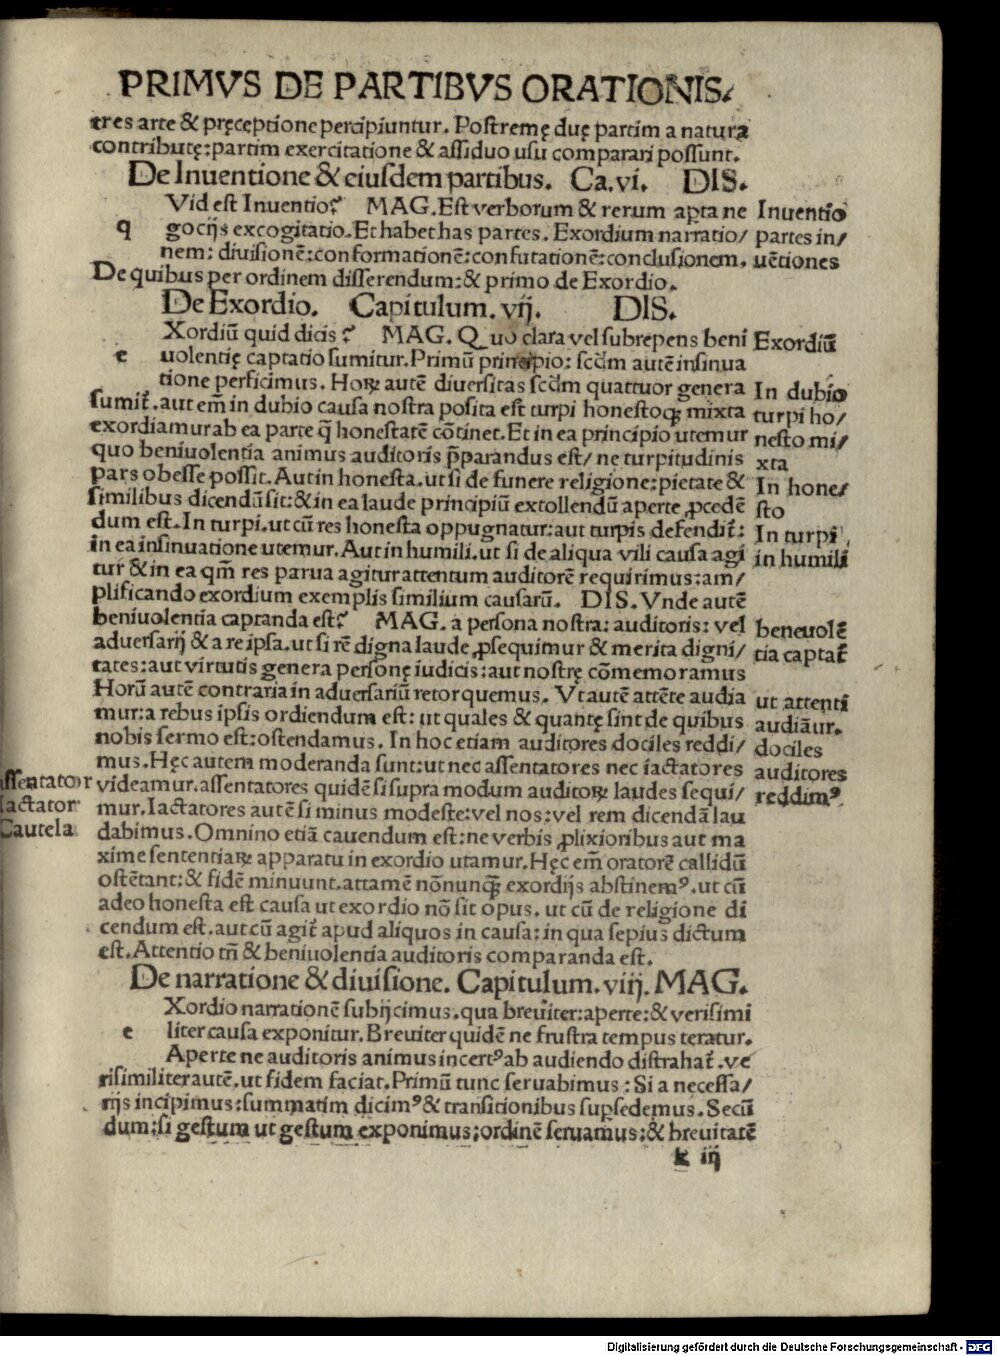 PRIMVS DE PARTIBVS ORATIONIS.
tres arte & pręceptione percipiuntur. Postremę duę partim a natura
contributę: partim exercitatione & assiduo usu comparari possunt.
De Inuentione & eiusdem partibus. Ca. vi. DIS.
Vid est Inuentio? MAG. Est verborum & rerum apta ne
Inuentio
q gocijs excogitatio. Et habet has partes. Exordium narratio/
partes in/
nem: diuisionē: conformationē: confutationē: conclusionem.
uētiones
De quibus per ordinem disserendum: & primo de Exordio.
De Exordio. Capitulum. vij. DIS.
Xordiū quid dicis? MAG. Quo clara vel subrepens beni
Exordiū
e uolentię captatio sumitur. Primū principio: scđm autē insinua
tione perficimus. Horꝝ autē diuersitas scđm quattuor genera
In dubio
sumit̃. aut em̃ in dubio causa nostra posita est turpi honestoqꝫ mixta
turpi ho/
exordiamur ab ea parte q̃ honestatē cōtinet. Et in ea principio utemur
nesto mi/
quo beniuolentia animus auditoris p̃parandus est/ ne turpitudinis
xta
pars obesse possit. Aut in honesta. ut si de funere religione: pietate &
In hone/
similibus dicendū sit: & in ea laude principiū extollendū aperte ꝓcedē
sto
dum est. In turpi. ut cū res honesta oppugnatur: aut turpis defendit̃:
In turpi
in ea insinuatione utemur. Aut in humili. ut si de aliqua vili causa agi
in humili
tur & in ea qm̃ res parua agitur attentum auditorē requirimus: am/
plificando exordium exemplis similium causarū. DIS. Vnde autē
beniuolentia captanda est? MAG. a persona nostra: auditoris: vel
beneuolē
aduersarij & a re ipsa. ut si rē digna laude ꝓsequimur & merita digni/
tia captat̃
tates: aut virtutis genera personę iudicis: aut nostrę cōmemoramus
Horū autē contraria in aduersariū retorquemus. Vt autē attēte audia
ut attenti
mur: a rebus ipsis ordiendum est: ut quales & quantę sint de quibus
audiāur.
nobis sermo est: ostendamus. In hoc etiam auditores dociles reddi/
dociles
mus. Hęc autem moderanda sunt: ut nec assentatores nec iactatores
auditores
assentator
videamur. assentatores quidē si supra modum auditorꝝ laudes sequi/
reddimꝰ.
Iactator
mur. Iactatores autē si minus modeste: vel nos: vel rem dicendā lau
Cautela
dabimus. Omnino etiā cauendum est: ne verbis ꝓlixioribus aut ma
xime sententiarꝝ apparatu in exordio utamur. Hęc em̃ oratorē callidū
ostētant: & fidē minuunt. attamē nōnunqꝫ exordijs abstinemꝰ. ut cū
adeo honesta est causa ut exordio nō sit opus. ut cū de religione di
cendum est. aut cū agit̃ apud aliquos in causa: in qua sepius dictum
est. Attentio tñ & beniuolentia auditoris comparanda est.
De narratione & diuisione. Capitulum. viij. MAG.
Xordio narrationē subijcimus. qua breuiter: aperte: & verisimi
e liter causa exponitur. Breuiter quidē ne frustra tempus teratur.
Aperte ne auditoris animus incertꝰ ab audiendo distrahat̃. ve
risimiliter autē. ut fidem faciat. Primū tunc seruabimus: Si a necessa/
rijs incipimus: summatim dicimꝰ & transitionibus sup̱sedemus. Secū
dum: si gestum ut gestum exponimus: ordinē seruamus: & breuitatē
k iij
Digitalisierung gefördert durch die Deutsche Forschungsgemeinschaft - DFG